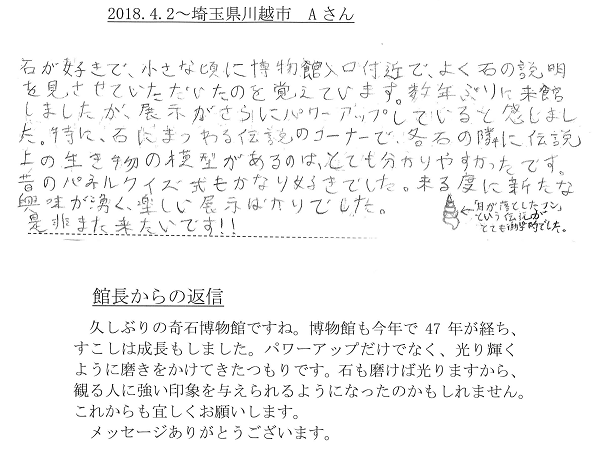 2018.4.2～埼玉県川越市　Aさん
石が好きで、小さな頃に博物館入口付近で、よく石の説明
を見させていただいたのを覚えています。数年ぶりに来館
しましたが、展示がさらにパワーアップしていると感じまし
た。特に、石にまつわる伝説のコーナーで、各石の隣に伝説
上の生き物の模型があるのは、とても分かりやすかったです。
昔のパネルクイズ式もかなり好きでした。来る度に新たな
興味が湧く、楽しい展示ばかりでした。
是非また来たいです!!
←「月が落としたフン」
という伝説が
とても衝撃的でした。
館長からの返信
久しぶりの奇石博物館ですね。博物館も今年で 47 年が経ち、
すこしは成長もしました。パワーアップだけでなく、光り輝く
ように磨きをかけてきたつもりです。石も磨けば光りますから、
観る人に強い印象を与えられるようになったのかもしれません。
これからも宜しくお願いします。
メッセージありがとうございます。